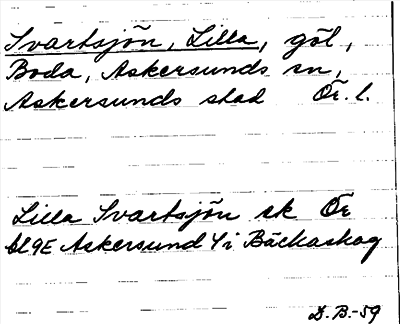 Svartsjön, Lilla, göl,
Boda, Askersunds sn,
Askersunds stad Ör. l.
Lilla Svartsjön sk Ör
bl 9E Askersund 4i Bäckaskog
D.B.-59